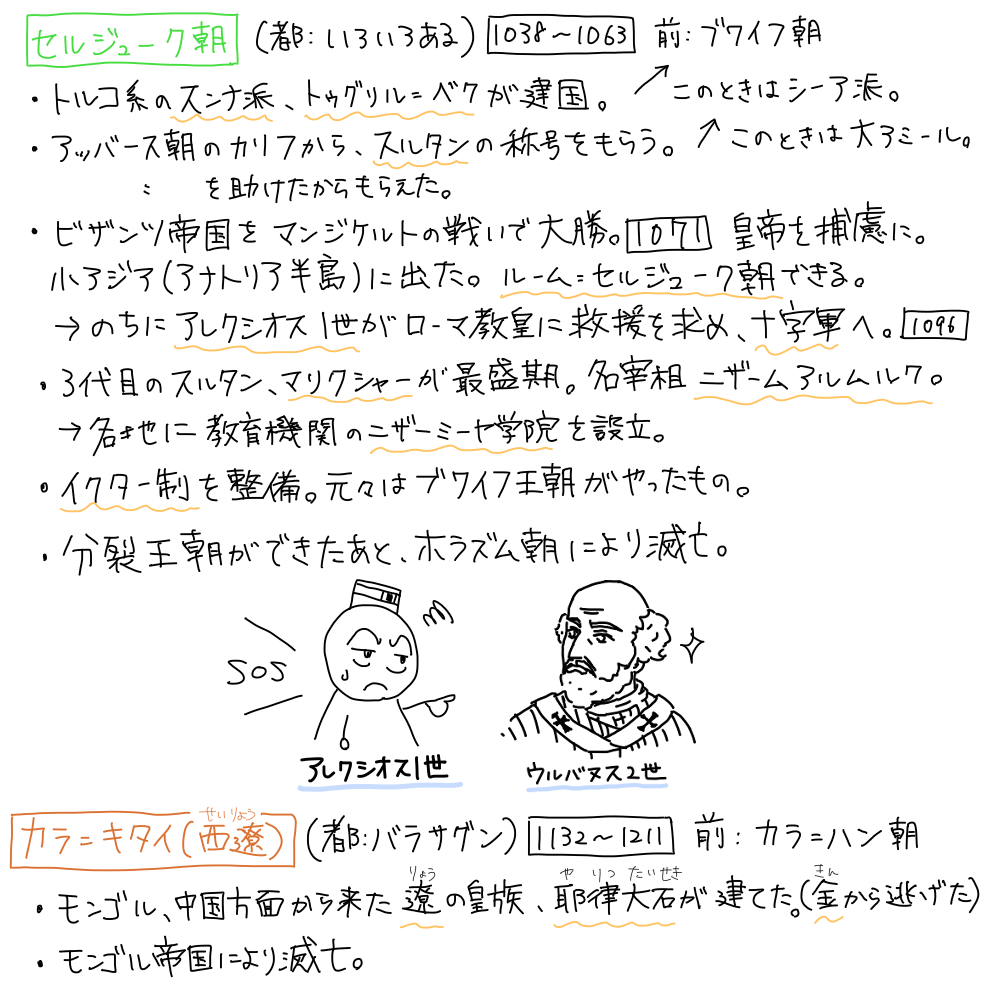 セルジューク朝 (都:いろいろある) 1038〜1063 前:ブワイフ朝
・トルコ系のスンナ派、トゥグリル=ベクが建国。 ↗このときはシーア派。
・アッバース朝のカリフから、スルタンの称号をもらう。 ↗このときは大アミール。
〃 を助けたからもらえた。
・ビザンツ帝国をマンジケルトの戦いで大勝。1071 皇帝を捕虜に。
小アジア(アナトリア半島)に出た。ルーム=セルジューク朝できる。
→のちにアレクシオス1世がローマ教皇に救援を求め、十字軍へ。1096
・3代目のスルタン、マリクシャーが最盛期。名宰相ニザームアルムルク。
→各地に教育機関のニザーミーヤ学院を設立。
・イクター制を整備。元々はブワイフ王朝がやったもの。
・分裂王朝ができたあと、ホラズム朝により滅亡。
SOS
アレクシオス1世 ウルバヌス2世
せいりょう
カラ=キタイ(西遼) (都:バラサグン) 1132〜1211 前:カラ=ハン朝
りょう やりつたいせき きん
・モンゴル、中国方面から来た遼の皇族、耶律大石が建てた。(金から逃げた)
・モンゴル帝国により滅亡。